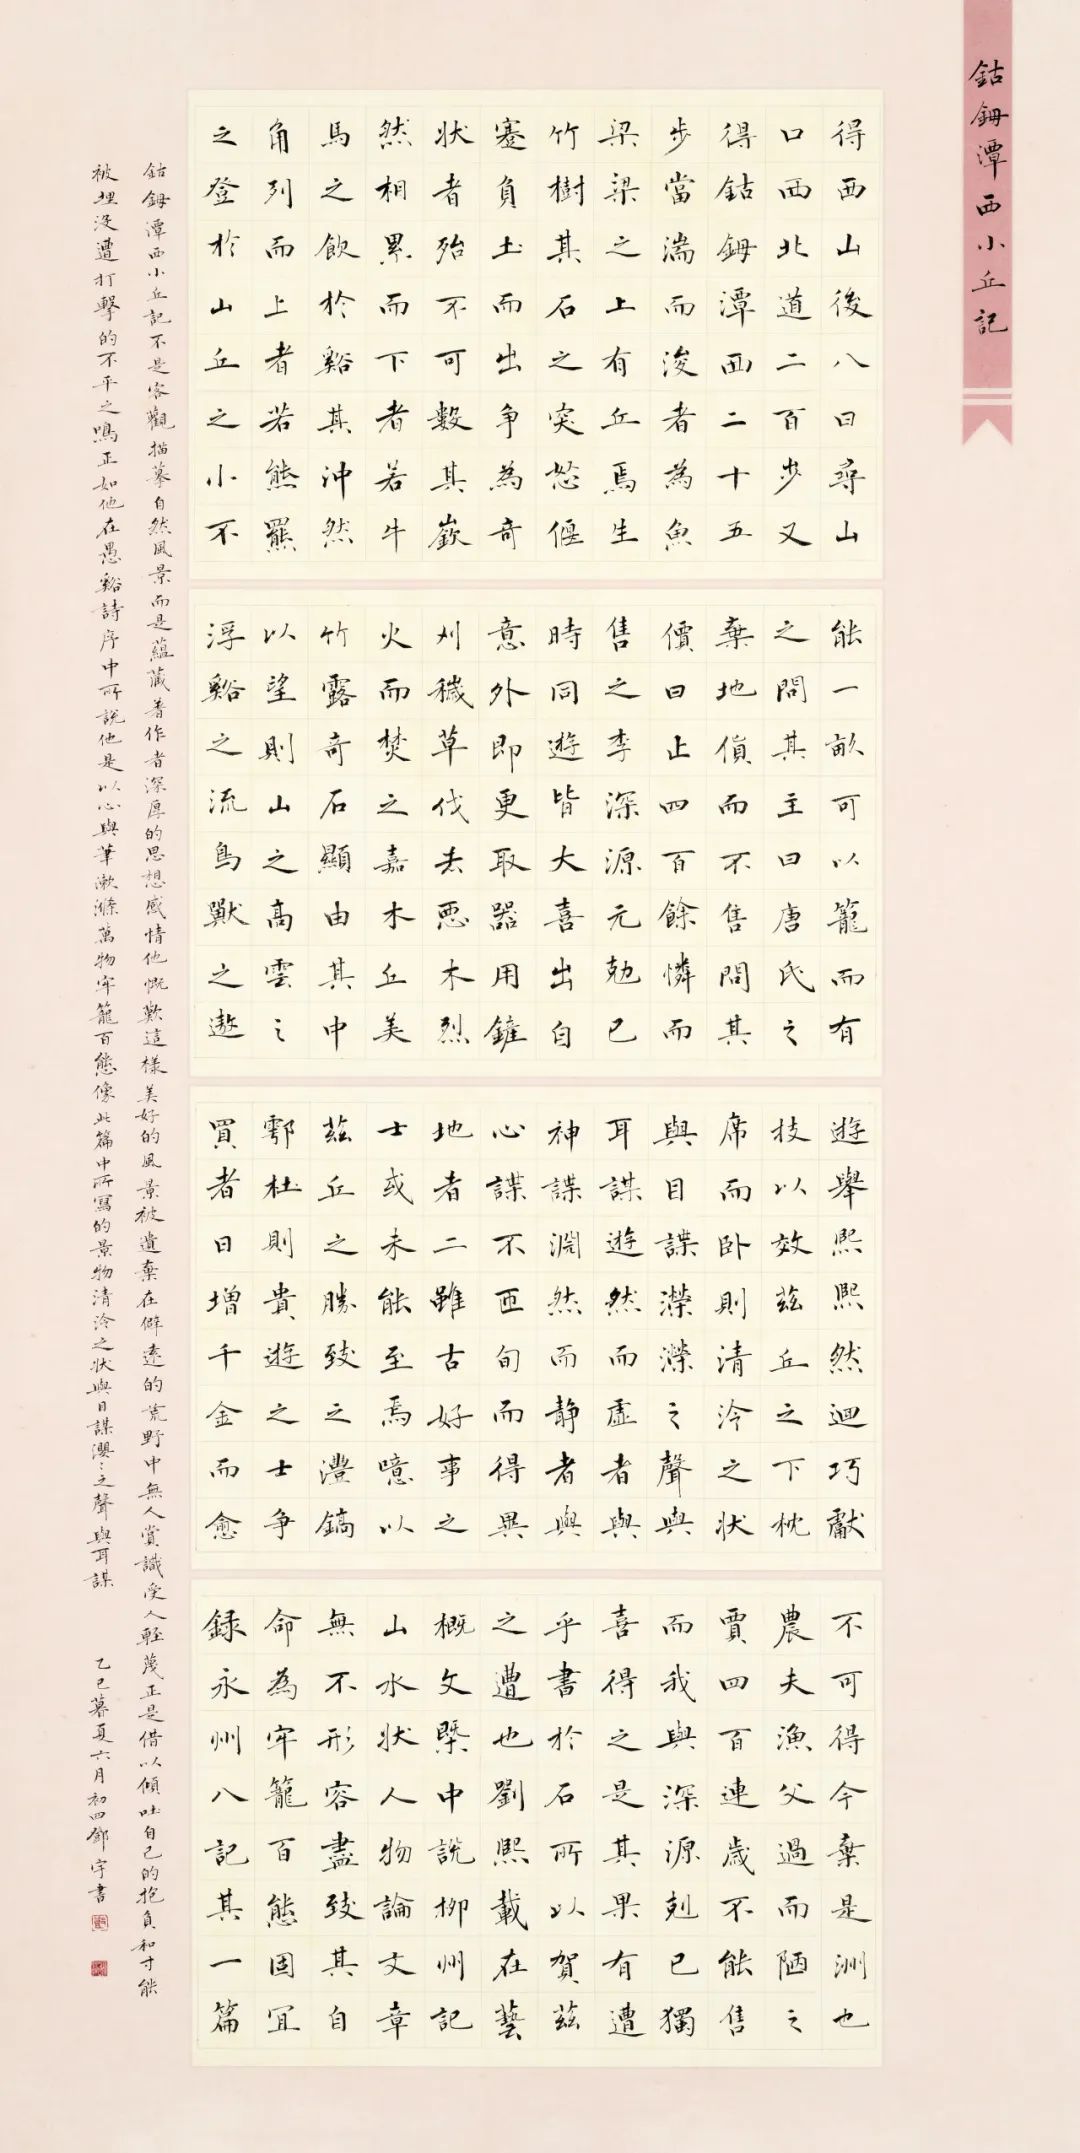 鈷鉧潭西小丘記
得西山後八日尋山
口西北道二百步又
得鈷鉧潭西二十五
步當湍而浚者為魚
梁梁之上有丘焉生
竹樹其石之突怒偃
蹇負土而出爭為奇
狀者殆不可數其嶔
然相累而下者若牛
馬之飲於谿其沖然
角列而上者若熊羆
之登於山丘之小不
能一畝可以籠而有
之問其主曰唐氏之
棄地貨而不售問其
價曰止四百餘憐而
售之李深源元勀已
時同遊皆大喜出自
意外即更取器用鏟
刈穢草伐去惡木烈
火而焚之嘉木丘美
竹露奇石顯由其中
以望則山之高雲之
浮谿之流鳥獸之遨
遊舉熙熙然迴巧獻
技以效茲丘之下枕
席而臥則清泠之狀
與目謀瀠瀠之聲與
耳謀遊然而虛者與
神謀淵然而靜者與
心謀不匝旬而得異
地者二雖古好事之
士或未能至焉噫以
茲丘之勝致之灃鎬
鄠杜則貴遊之士爭
買者日增千金而愈
不可得今棄是洲也
農夫漁父過而陋之
賈四百連歲不能售
而我與深源剋已獨
喜得之是其果有遭
乎書於石所以賀茲
之遭也劉熙載在藝
概文槩中說柳州記
山水狀人物論文章
無不形容盡致其自
命為牢籠百態固宜
錄永州八記其一篇
鈷鉧潭西小丘記不是客觀描摹自然風景而是蘊藏著作者深厚的思想感情他慨歎這樣美好的風景被遺棄在僻遠的荒野中無人賞識受人輕蔑正是借以傾吐自己的抱負和才能
被埋沒遭打擊的不平之鳴正如他在愚谿詩序中所說他是以心與筆漱滌萬物牢籠百態像此篇中所寫的景物清泠之狀與目謀瀠瀠之聲與耳謀 乙巳暮夏六月初四鄧宇書